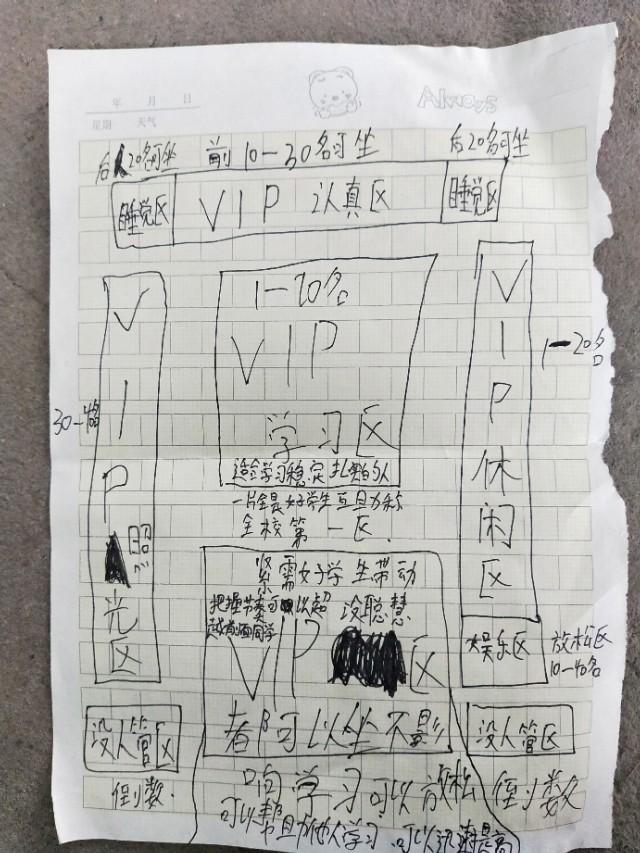 年 月 日
Always
星期 天气
后20名可坐
前10-30名可坐
后20名可坐
睡觉区
VIP 认真区
睡觉区
VIP 照光区
30-40名
1-20名
VIP
学习区
适合学习稳定 扎实的人
一片全是好学生互且力称
全校第一区.
VIP休闲区
1-20名
紧需好学生带动
把握节奏可以超
越前面同学
没聪慧
VIP 区
者阿可以坐不影
响学习可以放松
可以帮且力他人学习.可以迅速提高
娱乐区
放松区
10-40名
没人管区
倒数.
没人管区
倒数